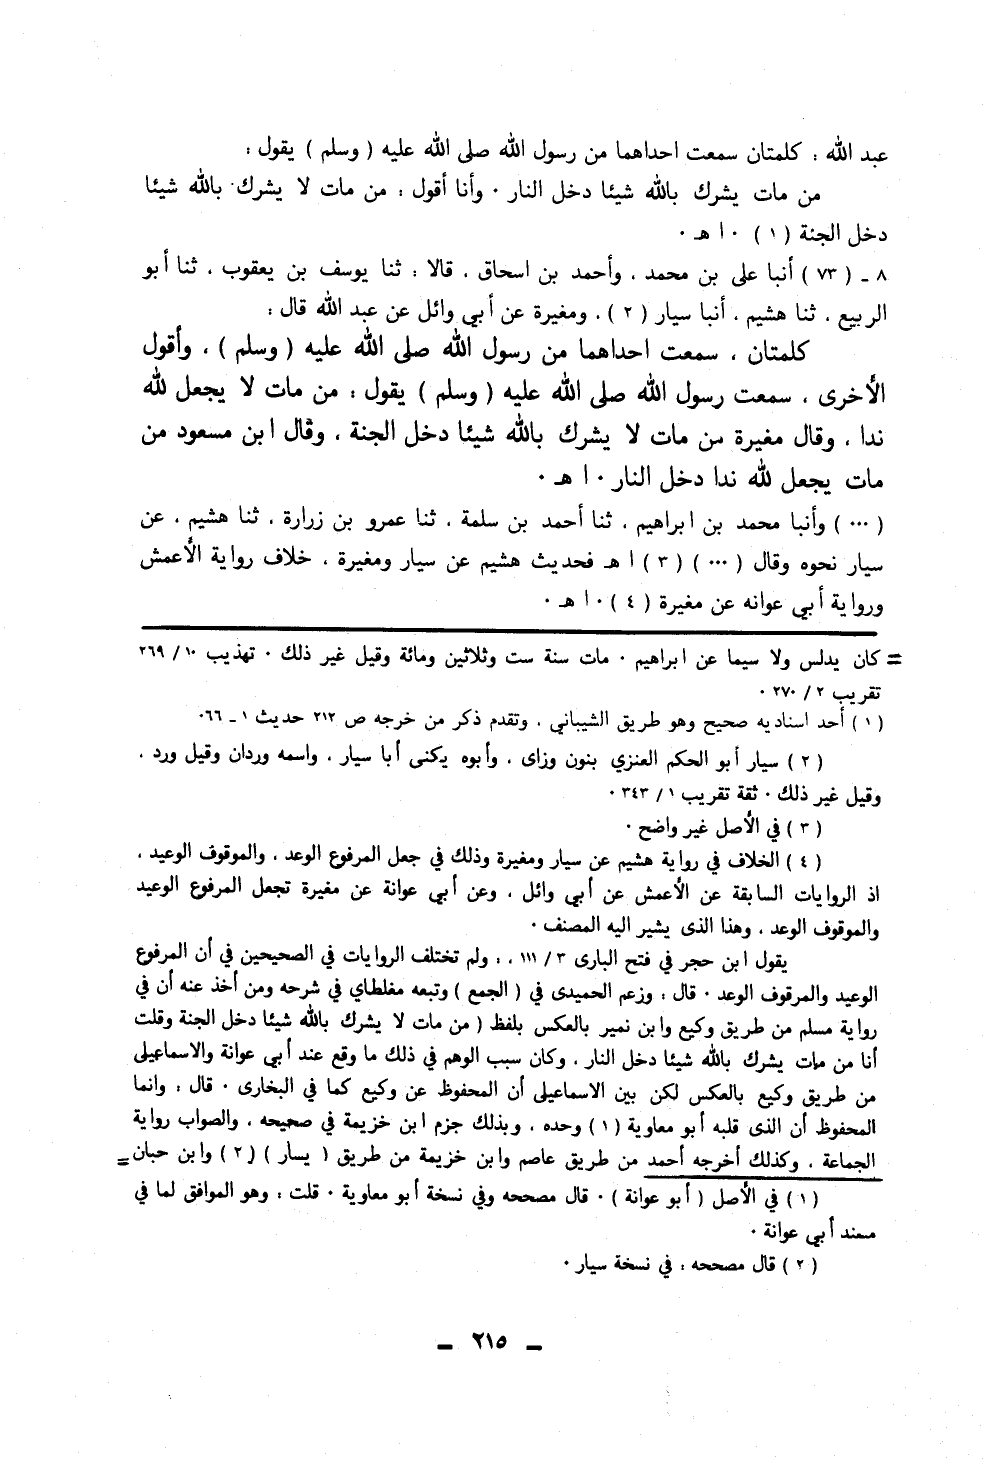 عبد الله : كلمتان سمعت احداهما من رسول الله صلى الله عليه ( وسلم ) يقول :
من مات يشرك بالله شيئا دخل النار ٠ وأنا أقول : من مات لا يشرك بالله شيئا
دخل الجنة ( ١ ) ٠ ا هـ ٠
٨ ـ ( ٧٣ ) أنبا على بن محمد ، وأحمد بن اسحاق ، قالا : ثنا يوسف بن يعقوب ، ثنا أبو
الربيع ، ثنا هشيم ، أنبا سيار ( ٢ ) ، ومغيرة عن أبي وائل عن عبد الله قال :
كلمتان ، سمعت احداهما من رسول الله صلى الله عليه ( وسلم ) ، وأقول
الأخرى ، سمعت رسول الله صلى الله عليه ( وسلم ) يقول : من مات لا يجعل لله
ندا ، وقال مغيرة من مات لا يشرك بالله شيئا دخل الجنة ، وقال ابن مسعود من
مات يجعل لله ندا دخل النار ٠ ا هـ ٠
( ٠٠٠ ) وأنبا محمد بن ابراهيم ، ثنا أحمد بن سلمة ، ثنا عمرو بن زرارة ، ثنا هشيم ، عن
سيار نحوه وقال ( ٠٠٠ ) ( ٣ ) ا هـ فحديث هشيم عن سيار ومغيرة ، خلاف رواية الأعمش
ورواية أبي عوانه عن مغيرة ( ٤ ) ٠ ا هـ ٠
= كان يدلس ولا سيما عن ابراهيم ٠ مات سنة ست وثلاثين ومائة وقيل غير ذلك ٠ تهذيب ١٠ / ٢٦٩
تقريب ٢ / ٢٧٠ ٠
( ١ ) أحد اسناديه صحيح وهو طريق الشيباني ، وتقدم ذكر من خرجه ص ٢١٢ حديث ١ ـ ٠٦٦
( ٢ ) سيار أبو الحكم العنزي بنون وزاى ، وأبوه يكنى أبا سيار ، واسمه وردان وقيل ورد ،
وقيل غير ذلك ٠ ثقة تقريب ١ / ٣٤٣ ٠
( ٣ ) في الأصل غير واضح ٠
( ٤ ) الخلاف في رواية هشيم عن سيار ومغيرة وذلك في جعل المرفوع الوعد ، والموقوف الوعيد ،
اذ الروايات السابقة عن الأعمش عن أبي وائل ، وعن أبي عوانة عن مغيرة تجعل المرفوع الوعيد
والموقوف الوعد ، وهذا الذى يشير اليه المصنف ٠
يقول ابن حجر في فتح البارى ٣ / ١١١ ، : ولم تختلف الروايات في الصحيحين في أن المرفوع
الوعيد والمرقوف الوعد ٠ قال : وزعم الحميدى في ( الجمع ) وتبعه مغلطاي في شرحه ومن أخذ عنه أن في
رواية مسلم من طريق وكيع وابن نمير بالعكس بلفظ ( من مات لا يشرك بالله شيئا دخل الجنة وقلت
أنا من مات يشرك بالله شيئا دخل النار ، وكان سبب الوهم في ذلك ما وقع عند أبي عوانة والاسماعيلى
من طريق وكيع بالعكس لكن بين الاسماعيلى أن المحفوظ عن وكيع كما في البخارى ٠ قال : وانما
المحفوظ أن الذى قلبه أبو معاوية ( ١ ) وحده ، وبذلك جزم ابن خزيمة في صحيحه ، والصواب رواية
الجماعة ، وكذلك أخرجه أحمد من طريق عاصم وابن خزيمة من طريق ( يسار ) ( ٢ ) وابن حبان =
( ١ ) في الأصل ( أبو عوانة ) ٠ قال مصححه وفي نسخة أبو معاوية ٠ قلت : وهو الموافق لما في
مسند أبي عوانة ٠
( ٢ ) قال مصححه : في نسخة سيار ٠
ـ ٢١٥ ـ